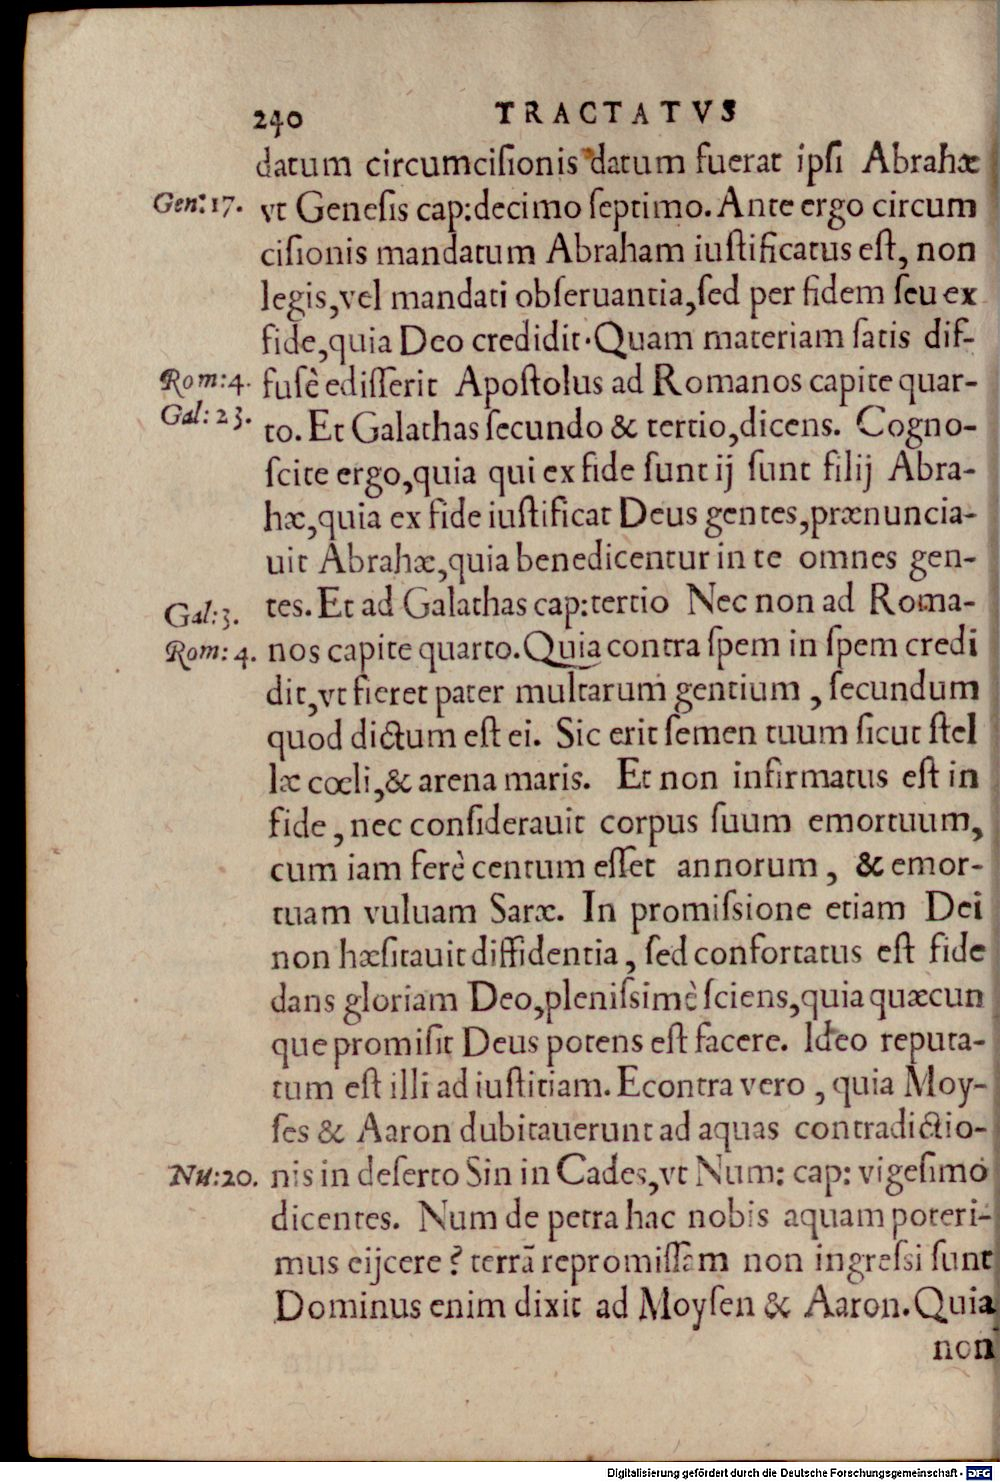 240 TRACTATVS
datum circumciſionis datum fuerat ipſi Abrahæ
Gen: 17. vt Geneſis cap:decimo ſeptimo. Ante ergo circum
ciſionis mandatum Abraham iuſtificatus eſt, non
legis,vel mandati obſeruantia,ſed per fidem ſeu ex
fide,quia Deo credidit. Quam materiam ſatis dif-
Rom:4. fuſè edifferit Apoſtolus ad Romanos capite quar-
Gal: 23. to. Et Galathas ſecundo & tertio,dicens. Cogno-
ſcite ergo,quia qui ex fide ſunt ij ſunt filij Abra-
hæ,quia ex fide iuſtificat Deus gentes,prænuncia-
uit Abrahæ,quia benedicentur in te omnes gen-
Gal:3. tes. Et ad Galathas cap:tertio Nec non ad Roma-
Rom: 4. nos capite quarto. Quia contra ſpem in ſpem credi
dit,vt fieret pater multarum gentium , ſecundum
quod dictum eſt ei. Sic erit ſemen tuum ſicut ſtel
læ cœli,& arena maris. Et non infirmatus eſt in
fide , nec conſiderauit corpus ſuum emortuum,
cum iam ferè centum eſſet annorum , & emor-
tuam vuluam Saræ. In promiſsione etiam Dei
non hæſitauit diffidentia , ſed confortatus eſt fide
dans gloriam Deo,pleniſsimè ſciens,quia quæcun
que promiſit Deus potens eſt facere. Ideo reputa-
tum eſt illi ad iuſtitiam. Econtra vero , quia Moy-
ſes & Aaron dubitauerunt ad aquas contradictio-
Nu:20. nis in deſerto Sin in Cades,vt Num: cap: vigeſimo
dicentes. Num de petra hac nobis aquam poteri-
mus eijcere? terrã repromiſſam non ingreſsi ſunt
Dominus enim dixit ad Moyſen & Aaron. Quia
non
Digitalisierung gefördert durch die Deutsche Forschungsgemeinschaft - DFG